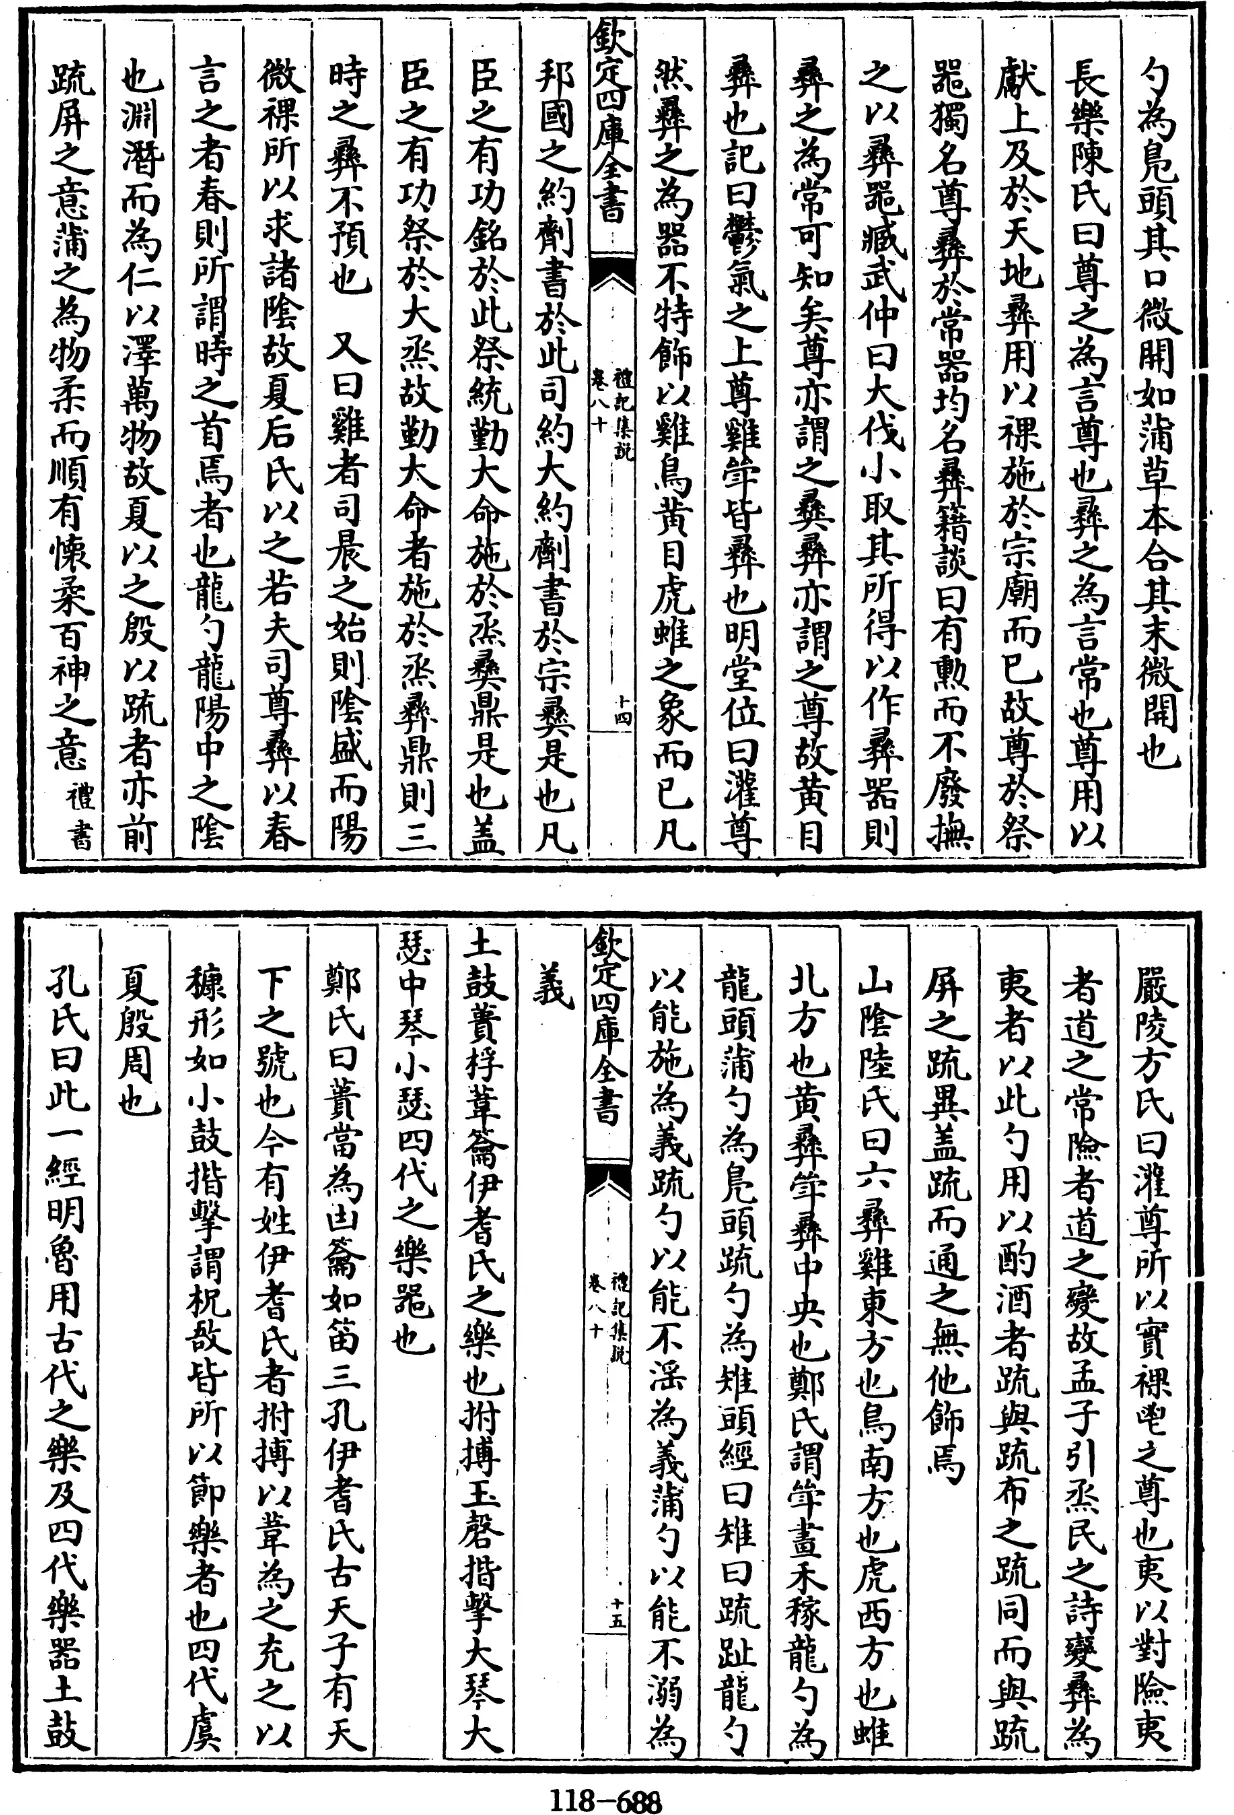 勺為鳧頭其口微開如蒲草本合其末微開也
長樂陳氏曰尊之為言尊也彞之為言常也尊用以
獻上及於天地彞用以祼施於宗廟而已故尊於祭
器獨名尊彞於常器均名彞籍談曰有勲而不廢撫
之以彞器臧武仲曰大伐小取其所得以作彞器則
彞之為常可知矣尊亦謂之彞彞亦謂之尊故黄目
彞也記曰鬱氣之上尊雞斝皆彞也明堂位曰灌尊
然彞之為器不特飾以雞鳥黄目虎蜼之象而已凡
欽定四庫全書
禮記集説
卷八十
十四
邦國之約劑書於此司約大約劑書於宗彞是也凡
臣之有功銘於此祭統勤大命施於烝彞鼎是也盖
臣之有功祭於大烝故勤大命者施於烝彞鼎則三
時之彞不預也 又曰雞者司晨之始則陰盛而陽
微祼所以求諸陰故夏后氏以之若夫司尊彞以春
言之者春則所謂時之首焉者也龍勺龍陽中之陰
也淵潛而為仁以澤萬物故夏以之殷以疏者亦前
疏屏之意蒲之為物柔而順有懷柔百神之意 禮書
嚴陵方氏曰灌尊所以實祼鬯之尊也夷以對險夷
者道之常險者道之變故孟子引烝民之詩變彞為
夷者以此勺用以酌酒者疏與疏布之疏同而與疏
屏之疏異盖疏而通之無他飾焉
山陰陸氏曰六彞雞東方也鳥南方也虎西方也蜼
北方也黄彞斝彞中央也鄭氏謂斝畫禾稼龍勺為
龍頭蒲勺為鳧頭疏勺為雉頭經曰雉曰疏趾龍勺
以能施為義疏勺以能不淫為義蒲勺以能不溺為
欽定四庫全書
禮記集説
卷八十
十五
義
土鼓蕢桴葦籥伊耆氏之樂也拊搏玉磬揩擊大琴大
瑟中琴小瑟四代之樂器也
鄭氏曰蕢當為凷籥如笛三孔伊耆氏古天子有天
下之號也今有姓伊耆氏者拊搏以韋為之充之以
穅形如小鼓揩擊謂柷敔皆所以節樂者也四代虞
夏殷周也
孔氏曰此一經明魯用古代之樂及四代樂器土鼓
118-688